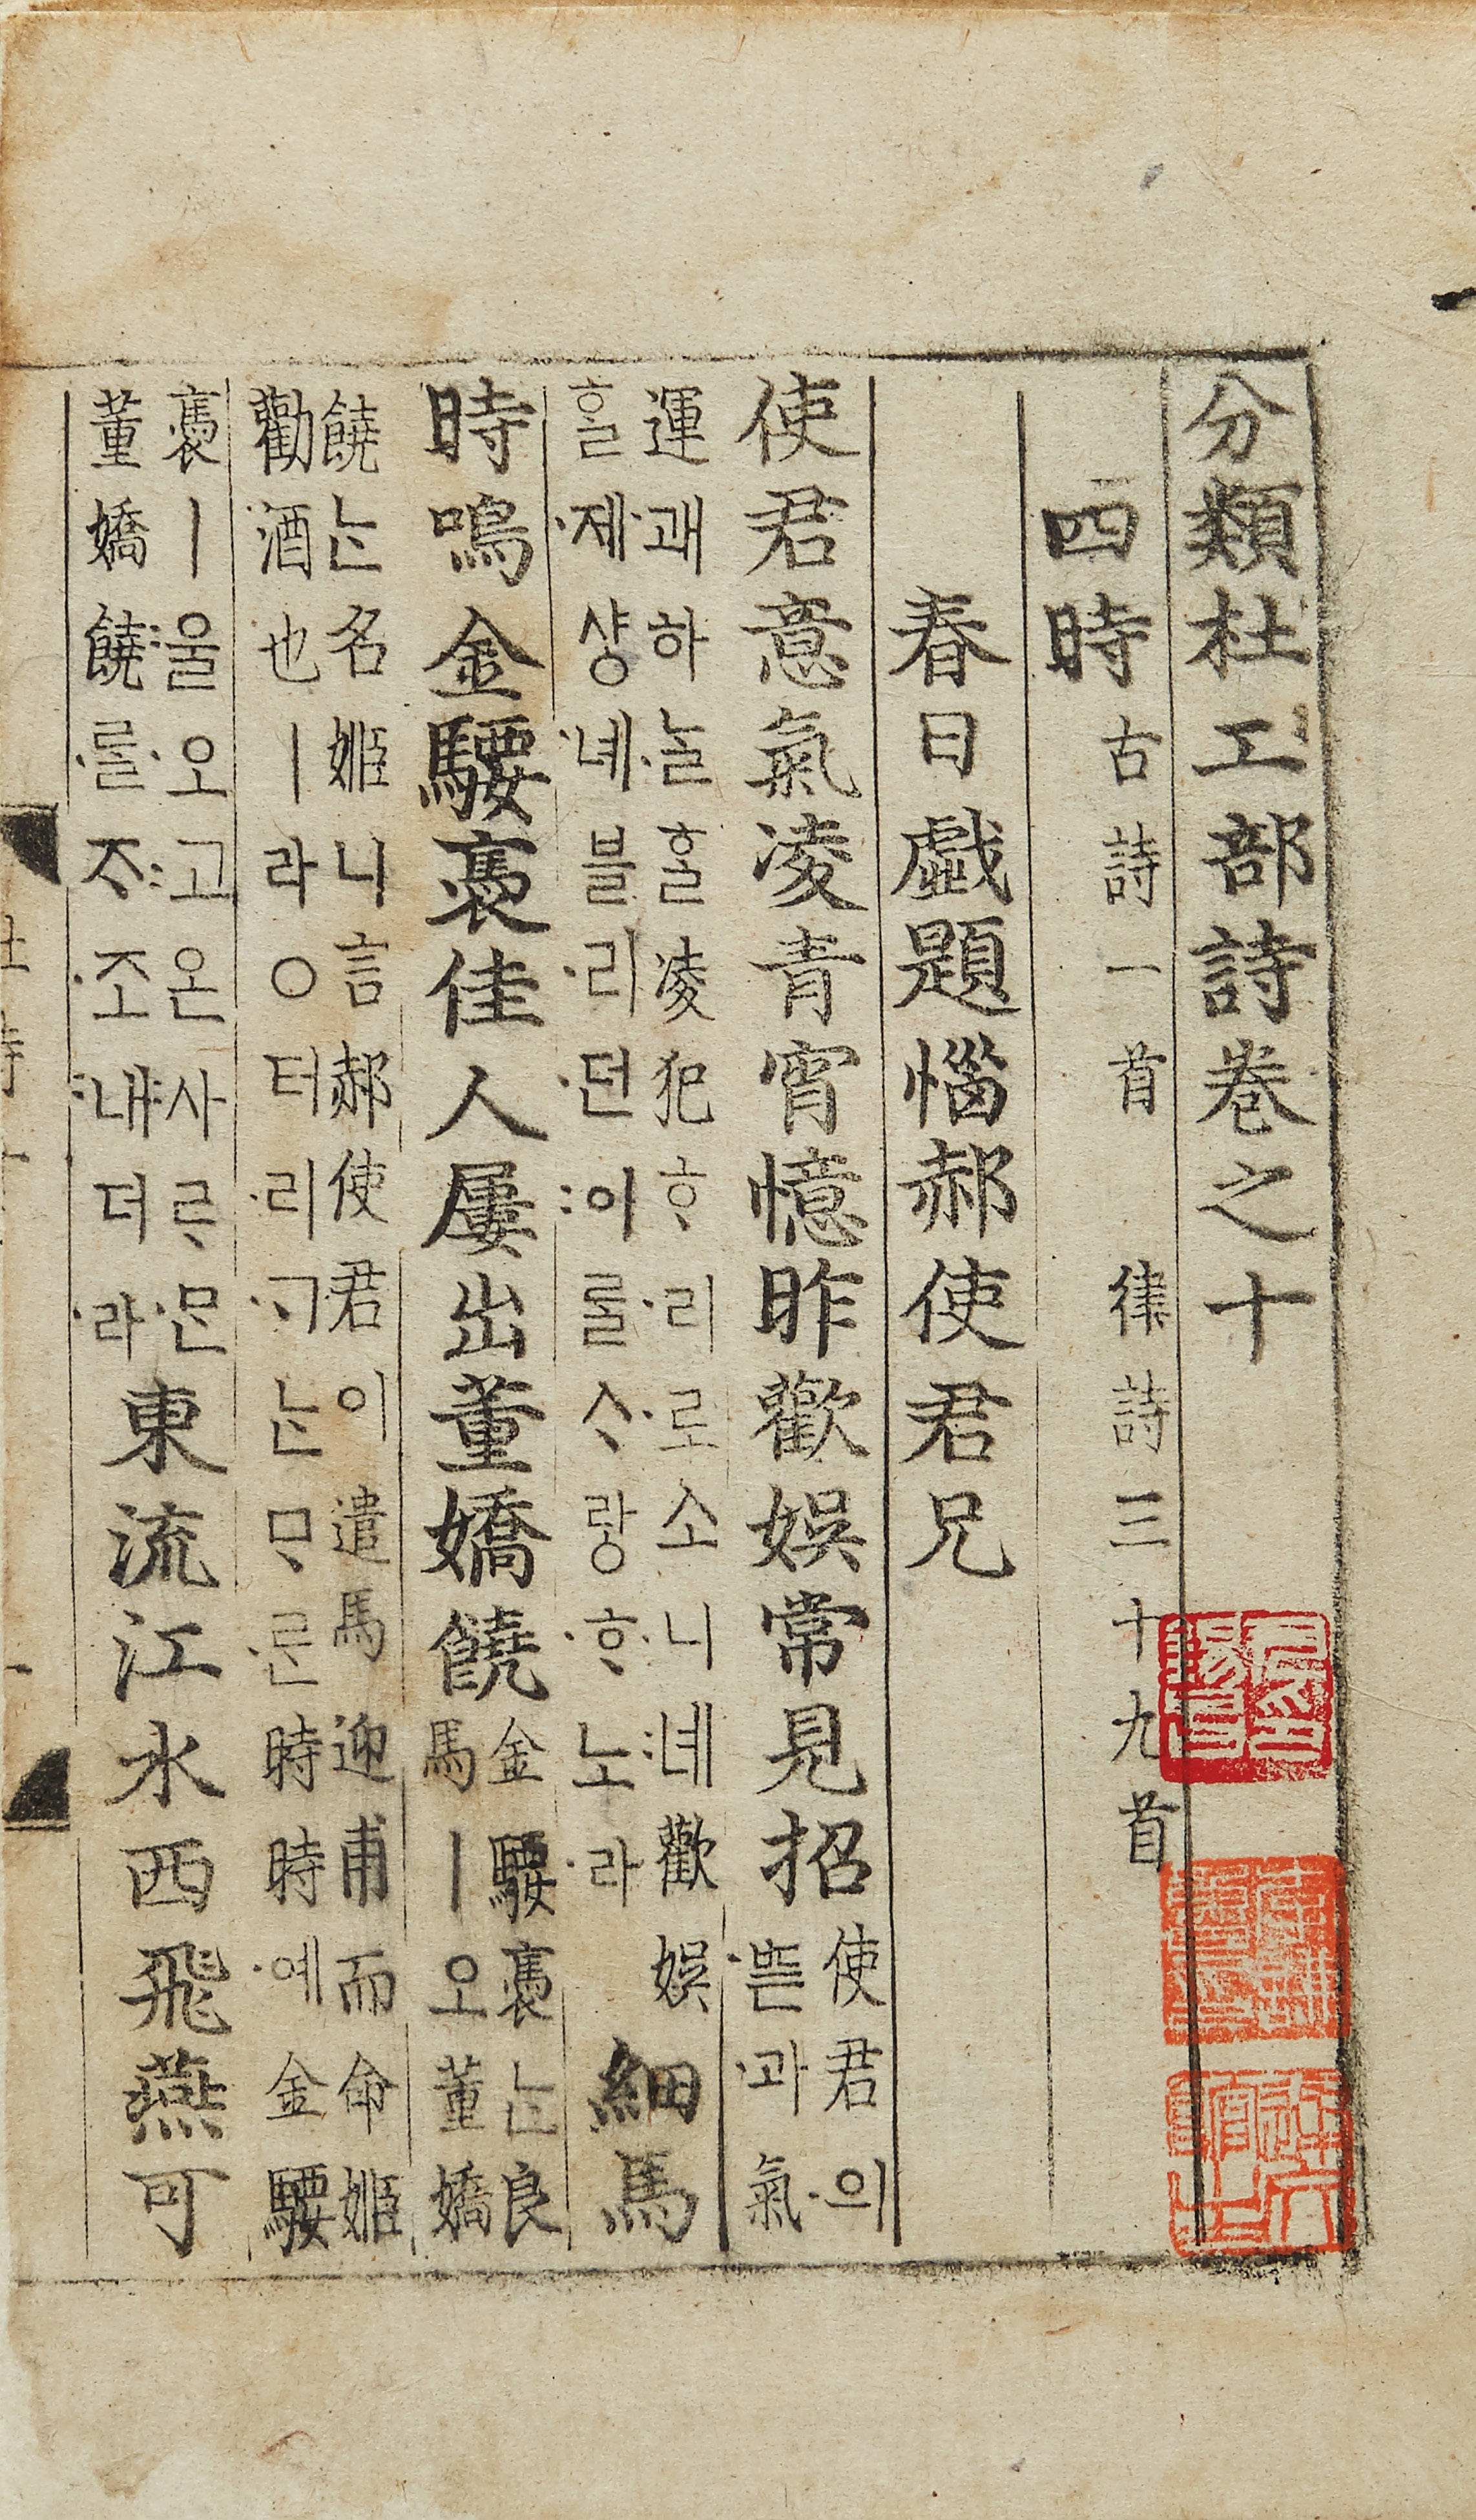 分類杜工部詩卷之十
四時 古詩一首 律詩三十九首
春日戱題惱郝使君兄
使君意氣凌青霄憶昨歡娛常見招
使君의
ᄠᅳᆮ과氣
運괘하ᄂᆞᆯᄒᆞᆯ凌犯ᄒᆞ리로소니녜歡娛
ᄒᆞᆯ제샹녜블리던이ᄅᆞᆯᄉᆞ랑ᄒᆞ노라
細馬
時鳴金騕褭佳人屢出董嬌饒
金騕褭ᄂᆞᆫ良
馬ㅣ오董嬌
饒ᄂᆞᆫ名姬니言郝使君이遣馬迎甫而命姬
勸酒也ㅣ라○터리ᄀᆞᄂᆞᆫᄆᆞᄅᆞᆫ時時예金騕
褭ㅣ울오고온사ᄅᆞᄆᆞᆫ
董嬌饒ᄅᆞᆯᄌᆞ조내더라
東流江水西飛燕可